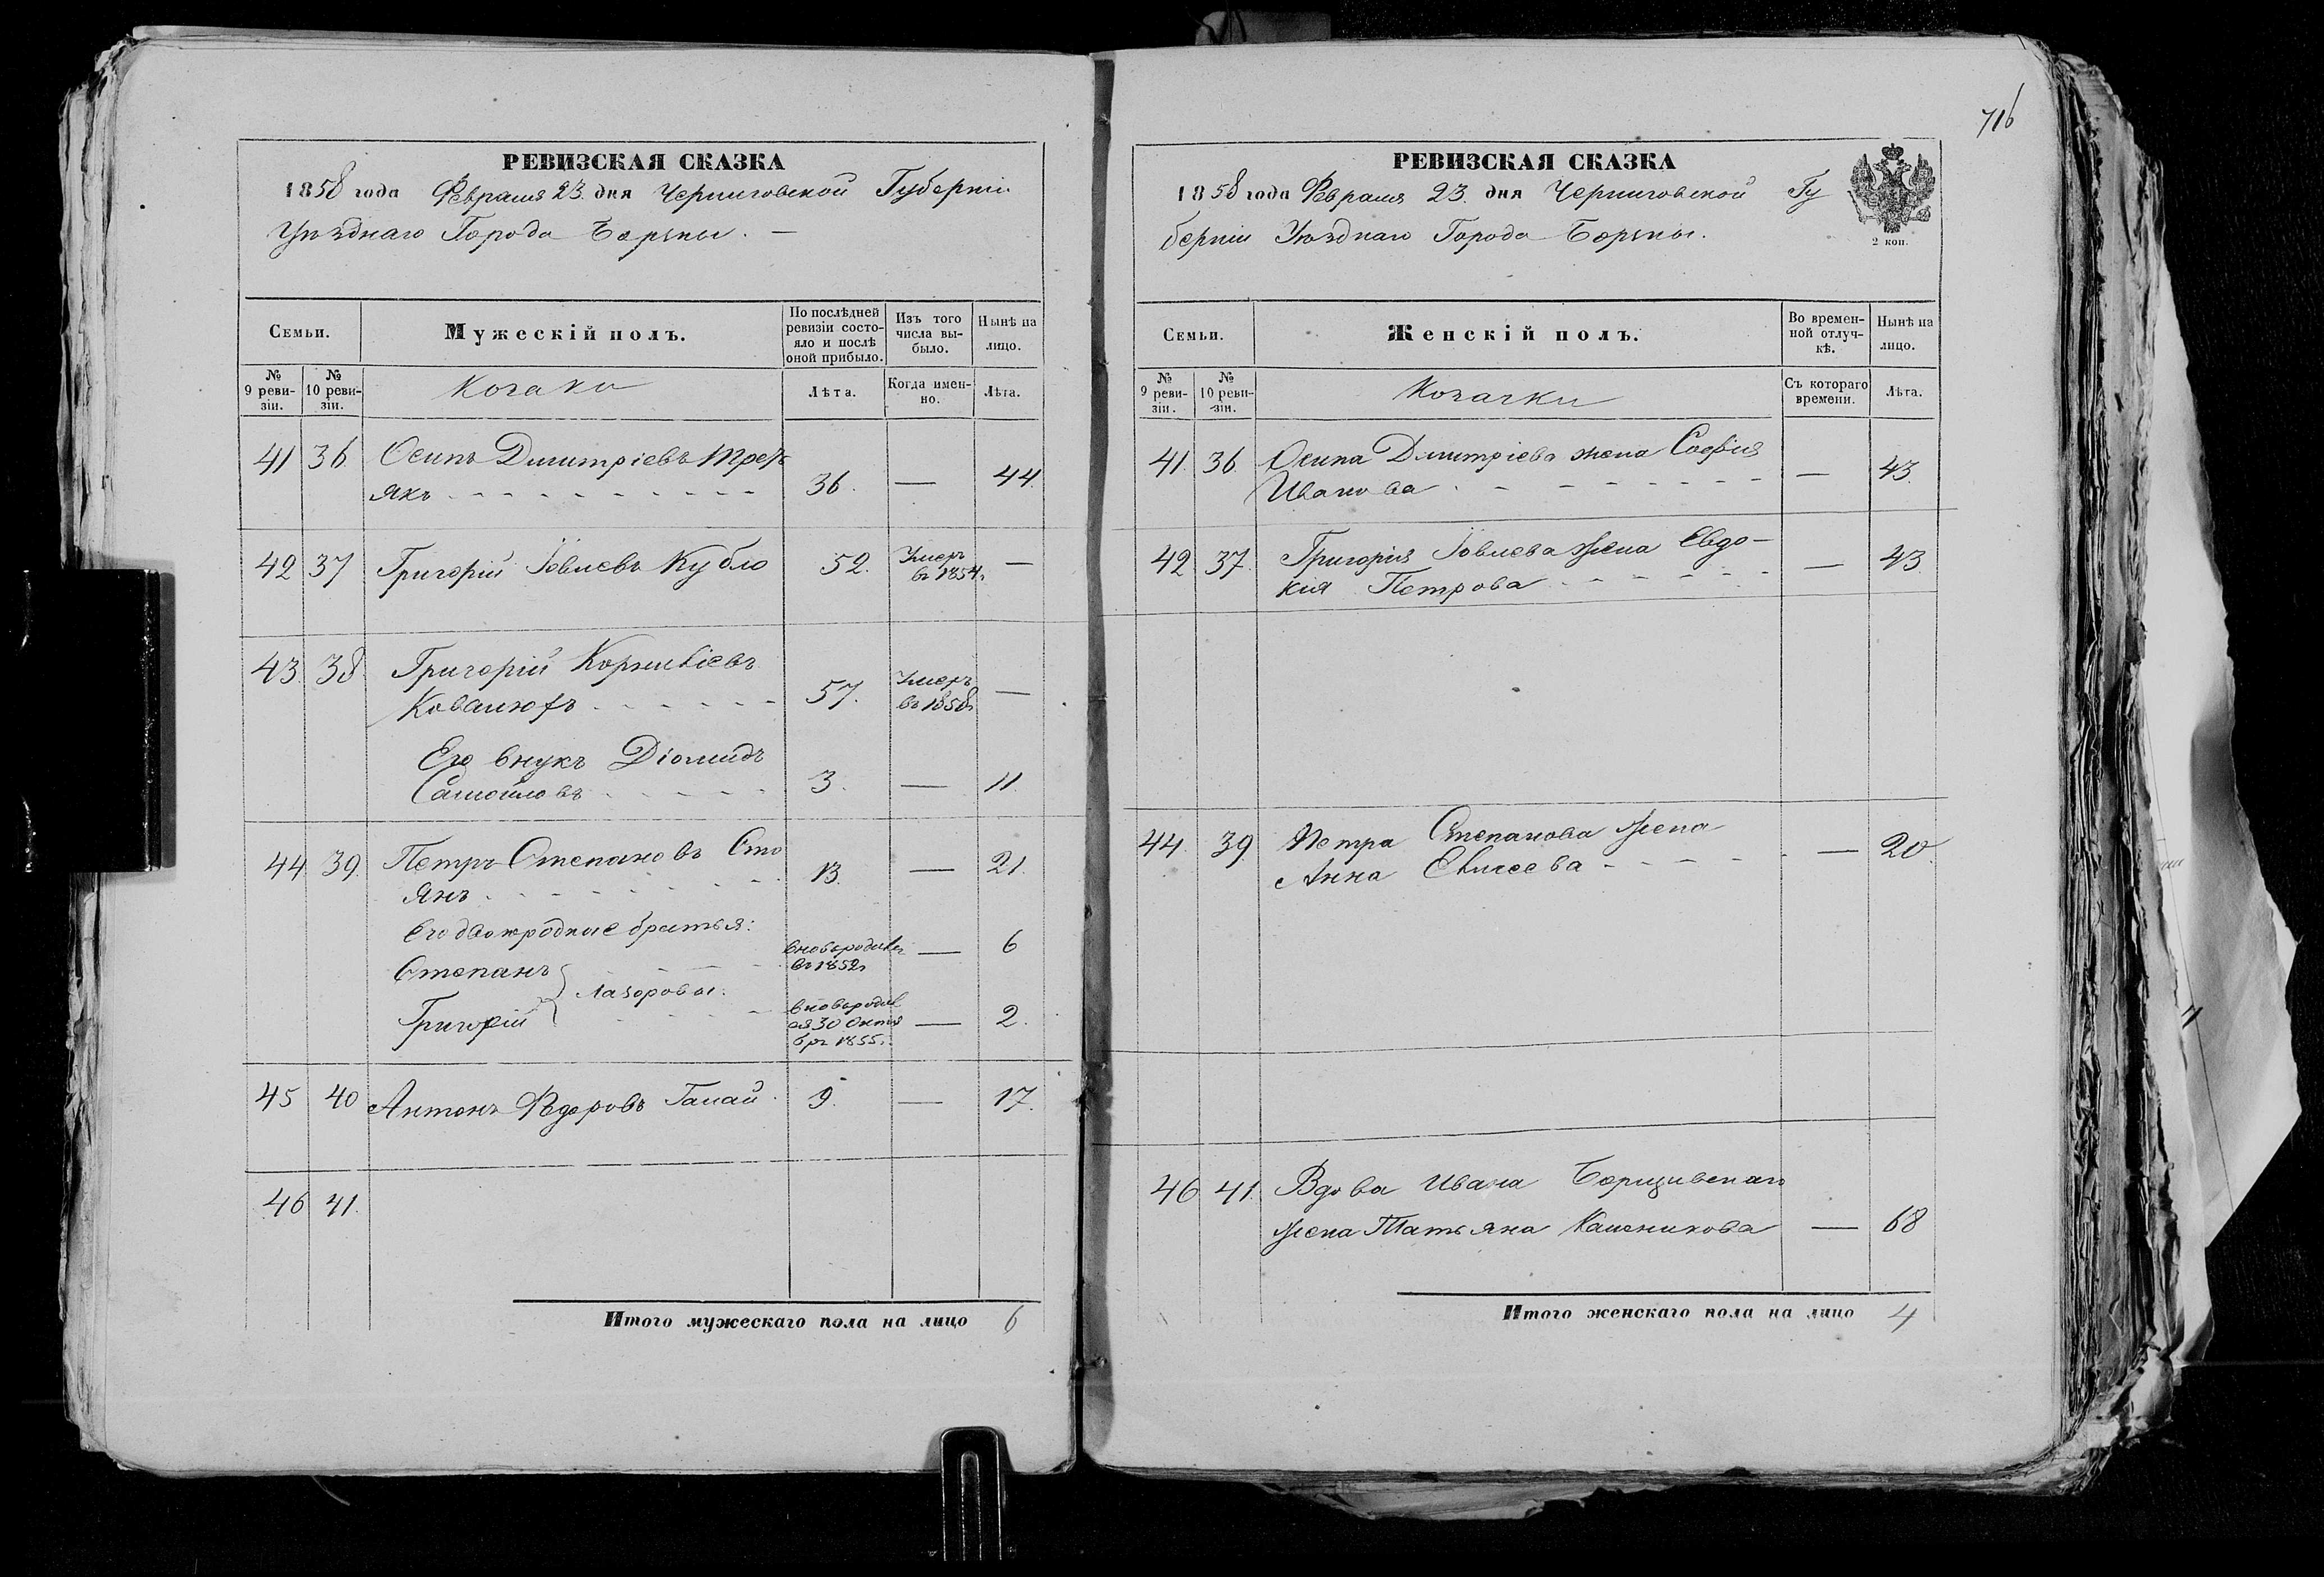 716
РЕВИЗСКАЯ СКАЗКА
1858 года Февраля 23. дня Черниговской Губерніи
Уѣзднаго Города Борзны. —
Семьи.
Мужескій полъ.
По послѣдней ревизіи состояло и послѣ оной прибыло.
Изъ того числа выбыло.
Нынѣ на лицо.
№ 9 ревизіи.
№ 10 ревизіи.
Козаки
Лѣта.
Когда именно.
Лѣта.
41 36 Осипъ Дмитріевъ Трет
якъ 36. — 44.
42 37 Григорій Іовлевъ Кубло 52. Умеръ въ 1854г. —
43. 38 Григорій Корниліевъ
Ковалюхъ 57. Умеръ въ 1858г. —
Его внукъ Діомидъ
Самойловъ 3. — 11.
44 39. Петръ Степановъ Сто
янъ 13. — 21.
Его двоюродные братья:
Степанъ вновьродил въ 1852г — 6
Лазоровы.
Григорій вновьродил ся 30 Октя бря 1855г. — 2.
45 40 Антонъ Федоровъ Галай. 9. — 17.
46 41.
Итого мужескаго пола на лицо 6
РЕВИЗСКАЯ СКАЗКА
1858 года Февраля 23. дня Черниговской Гу
берніи Уѣзднаго Города Борзны.
2 коп.
Семьи.
Женскій полъ.
Во временной отлучкѣ.
Нынѣ на лицо.
№ 9 ревизіи.
№ 10 ревизіи.
Козачки
Съ котораго времени.
Лѣта.
41. 36. Осипа Дмитріева жена Софія
Иванова — 43.
42 37. Григорія Іовлева жена Евдо-
кія Петрова — 43
44. 39 Петра Степанова жена
Анна Елисеева — 20.
46 41. Вдова Ивана
жена Татьяна — 68
Итого женскаго пола на лицо 4